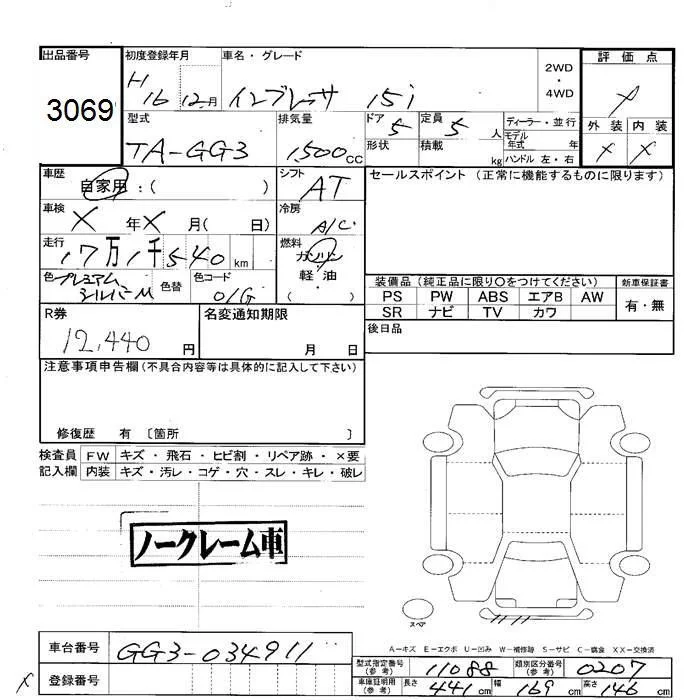 出品番号
3069
初度登録年月
H 16 12月
車名・グレード
インプレッサ 15i
2WD
・
4WD
評価点
外装 内装
× ×
型式
TA-GG3
排気量
1,500cc
ドア 5
形状
定員 5 人
積載 kg
ディーラー・並行
モデル年式 年
ハンドル 左・右
車歴
自家用:( )
シフト
AT
セールスポイント (正常に機能するものに限ります)
車検
× 年 × 月( 日)
冷房
A/C
走行
17万1千540km
燃料
ガソリン
軽・油
( )
色 プレミアムシルバーM
色替
色コード
01G
装備品(純正品に限り○をつけてください)
PS PW ABS エアB AW
SR ナビ TV カワ
新車保証書
有・無
後日品
R券
12,440円
名変通知期限
月 日
注意事項申告欄(不具合内容等は具体的に記入して下さい)
修復歴 有 〔箇所 〕
検査員
記入欄
FW キズ・飛石・ヒビ割・リペア跡・×要
内装 キズ・汚レ・コゲ・穴・スレ・キレ・破レ
ノークレーム車
スペア
A－キズ E－エクボ U－凹み W－補修跡 S－サビ C－腐食 XX－交換済
車台番号
GG3-034911
登録番号
型式指定番号(参考)
11088
類別区分番号(参考)
0207
車庫証明用(参考)
長さ 441cm
幅 169cm
高さ 146cm